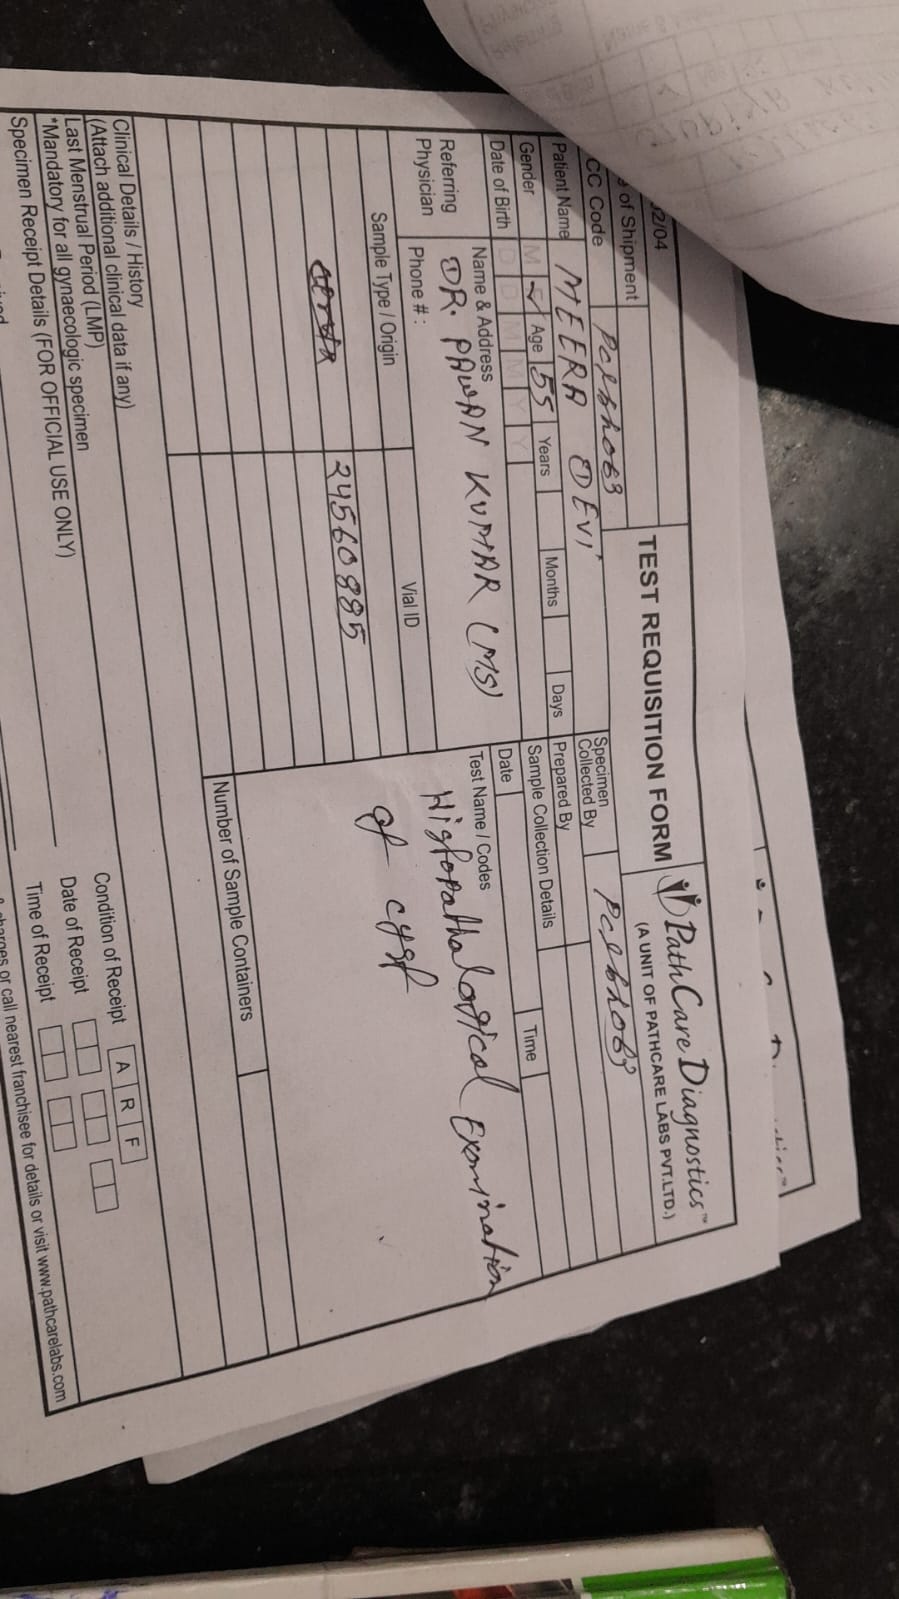 32/04
TEST REQUISITION FORM
PathCare Diagnostics™
(A UNIT OF PATHCARE LABS PVT.LTD.)
of Shipment
CC Code Pclbh063
Specimen Collected By Pclbh063
Patient Name MEERA DEVI
Prepared By
Gender M ✓ Age 55 Years Months Days
Sample Collection Details
Date of Birth D D M M Y Y
Date Time
Referring Physician
Name & Address
DR. PAWAN KUMAR (MS)
Phone # :
Test Name / Codes
Histopathalogical Exmination
of cyst
Sample Type / Origin Vial ID
24560885
Number of Sample Containers
Clinical Details / History
(Attach additional clinical data if any)
Last Menstrual Period (LMP)
*Mandatory for all gynaecologic specimen
Specimen Receipt Details (FOR OFFICIAL USE ONLY)
Condition of Receipt A R F
Date of Receipt
Time of Receipt
charges or call nearest franchisee for details or visit www.pathcarelabs.com